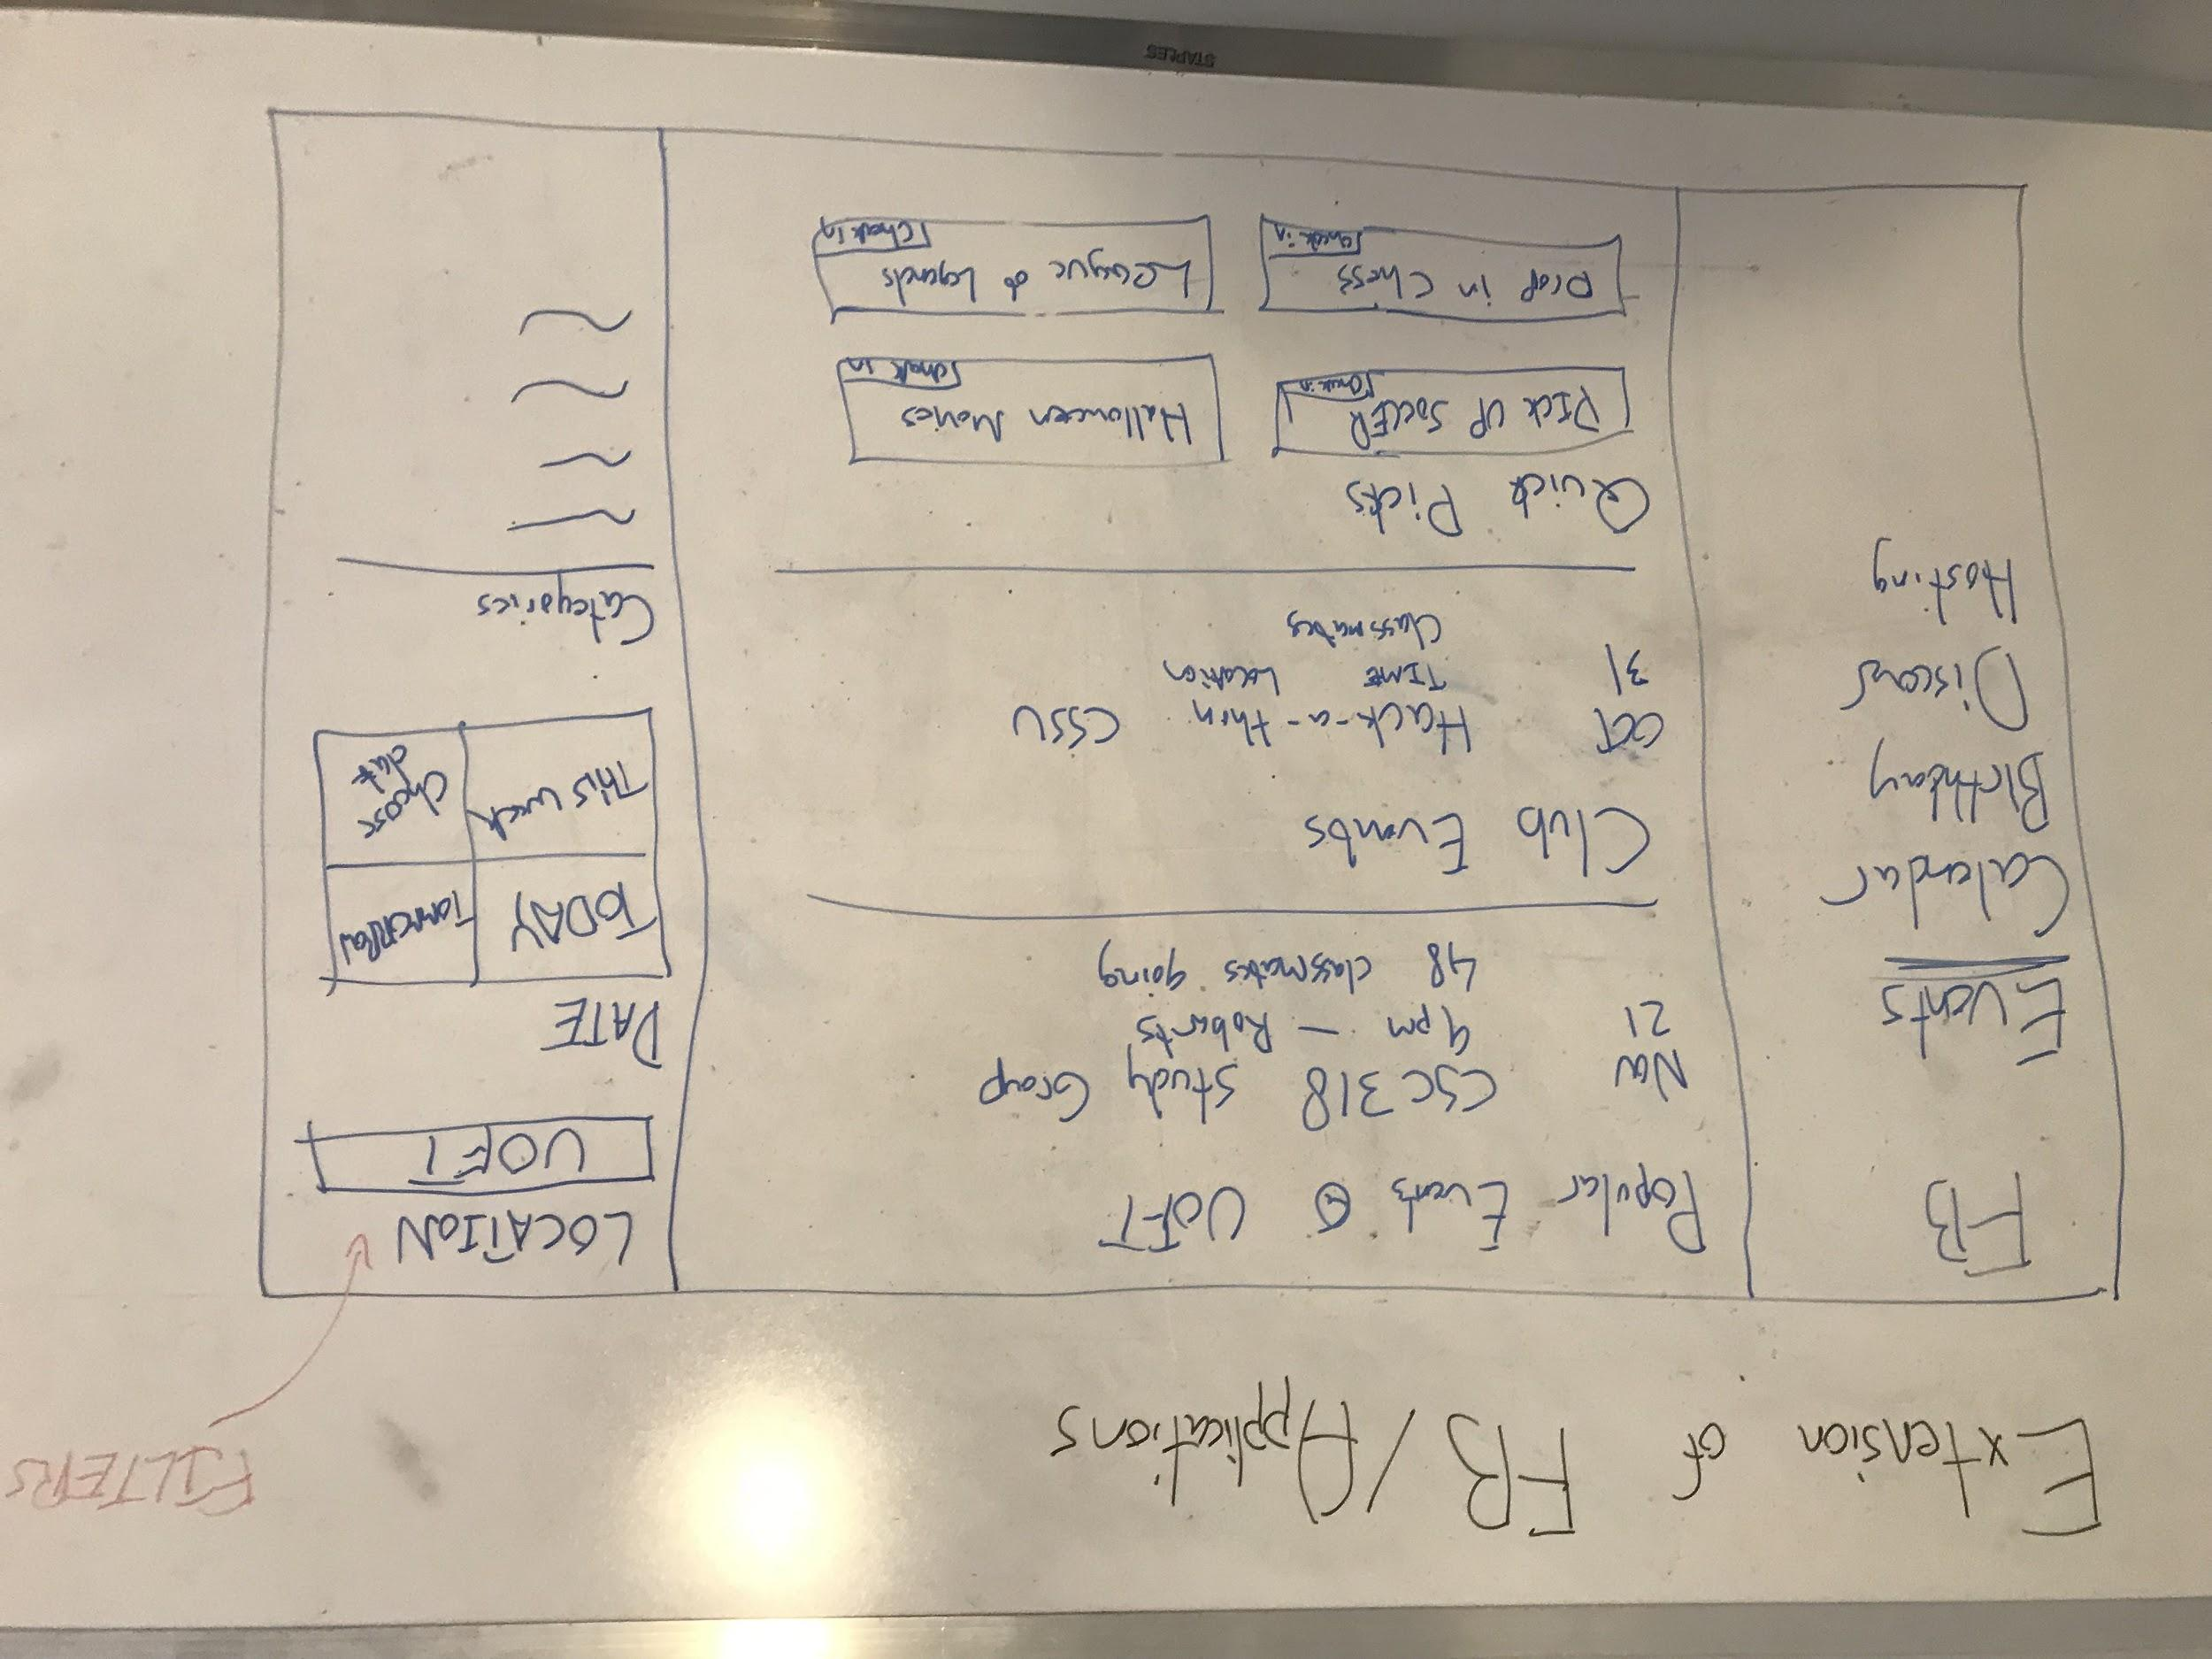 Extension of FB/Applications
FILTERS
FB
Events
Calendar
Birthday
Discover
Hosting
Popular Events @ UOFT
Nov CSC318 Study Group
21 9pm - Robarts
48 classmates going
Club Events
OCT Hack-a-thon CSSU
31 TIME Location
Classmates
Quick Picks
PICK UP SOCCER
Check in
Halloween Movies
Check in
Drop in Chess
Check in
League of Legends
Check in
LOCATION
UOFT
DATE
TODAY
TOMORROW
THIS week
choose
date
Categories
STAPLES